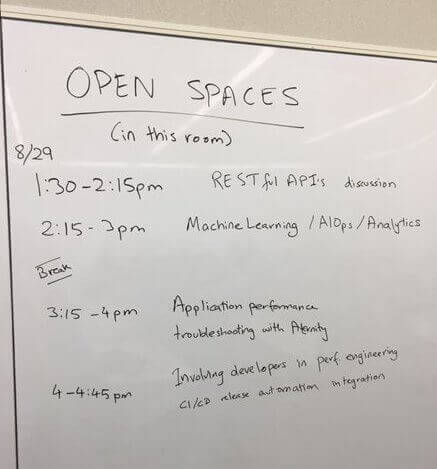 OPEN SPACES
(in this room)
8/29
1:30-2:15pm RESTful API's discussion
2:15-3pm Machine Learning / AIOps / Analytics
Break
3:15-4pm Application performance
troubleshooting with Aternity
4-4:45pm Involving developers in perf. engineering
CI/CD release automation integration